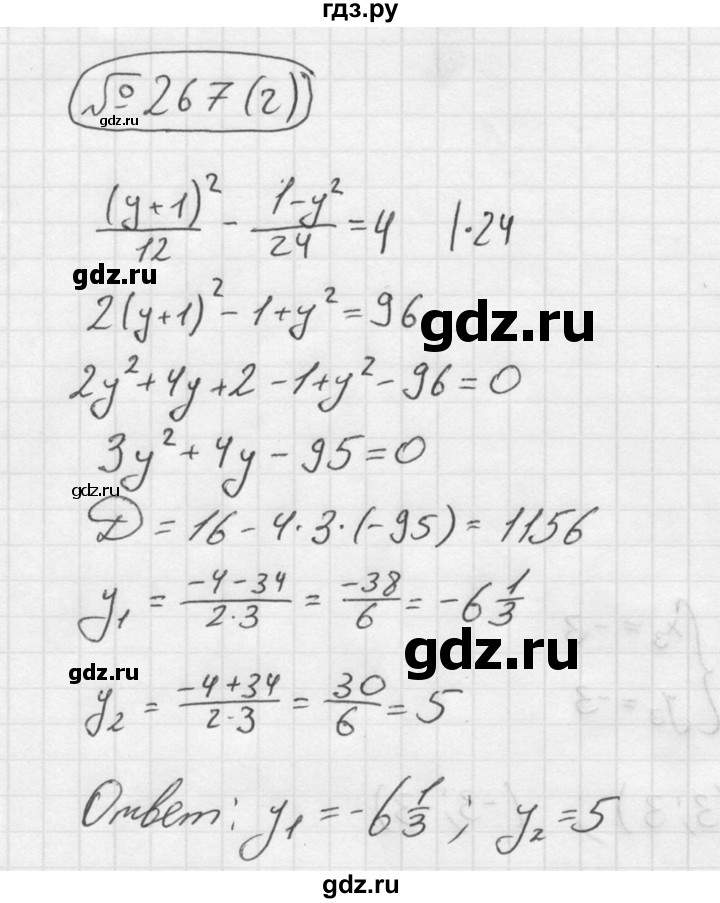 гдз.ру
№ 267 (г)
gdz.ru
(y+1)²/12 - 1-y²/24 = 4 |·24
gdz.ru
2(y+1)² - 1 + y² = 96
gdz.ru
2y² + 4y + 2 - 1 + y² - 96 = 0
3y² + 4y - 95 = 0
gdz.ru
D = 16 - 4·3·(-95) = 1156
y₁ = -4-34/2·3 = -38/6 = -6 1/3
gdz.ru
gdz.ru
y₂ = -4+34/2·3 = 30/6 = 5
Ответ: y₁ = -6 1/3; y₂ = 5
gdz.ru